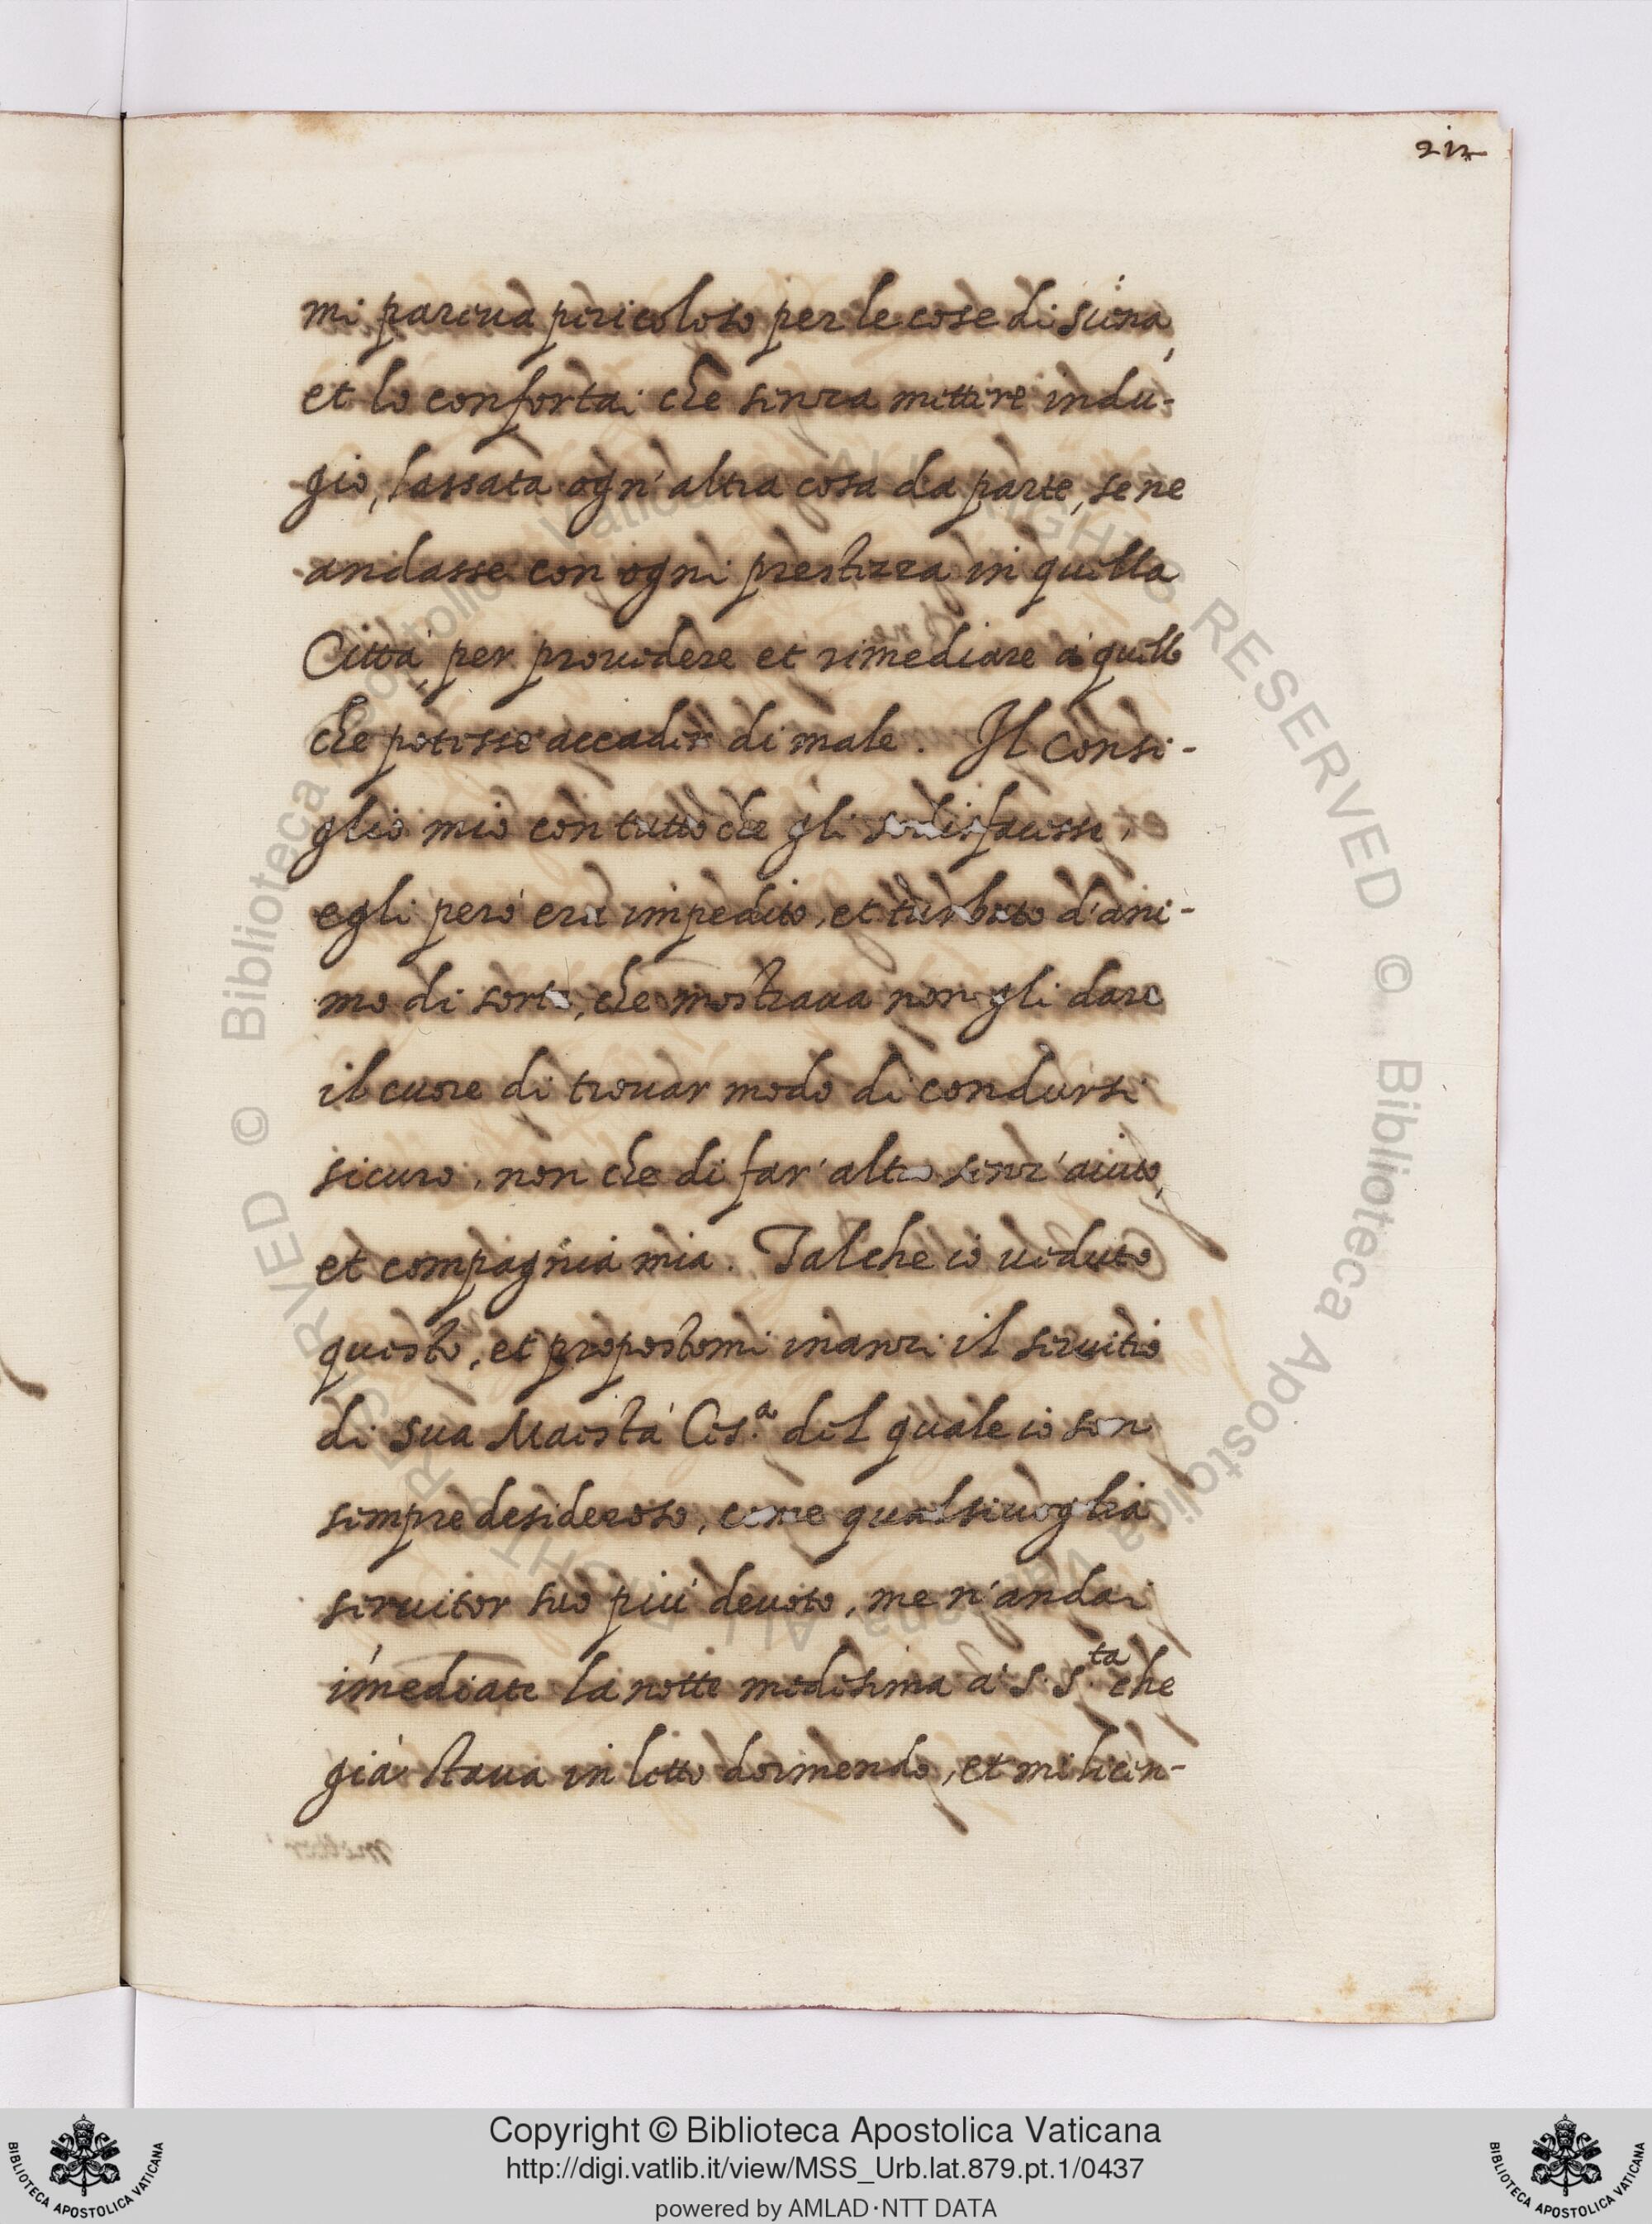 212
mi pareua pericoloso per le cose di Siena,
et lo confortai che senza mettere indu-
gio, lassata ogn'altra cosa da parte, se ne
andasse con ogni prestezza in quella
Città, per prouedere et rimediare à quello
che potesse accader di male. Il Consi-
glio mio con tutto che gli sodisfacesse,
egli però era impedito, et turbato d'ani-
mo di sorte, che mostraua non gli dare
il cuore di trouar modo di condursi
sicuro, non che di far'altro senz'aiuto,
et compagnia mia. Talche io ueduto
questo, et propostomi inanzi il seruitio
di sua Maestà Ces.ª del quale io son
sempre desideroso, come qualsiuoglia
seruitor suo più deuoto, me n'andai
im̄ediate la notte medesima à S. S.ta che
già staua in letto dormendo, et mi licen-
© Biblioteca Apostolica Vaticana ALL RIGHTS RESERVED
© Biblioteca Apostolica Vaticana ALL RIGHTS RESERVED
BIBLIOTECA APOSTOLICA VATICANA
Copyright © Biblioteca Apostolica Vaticana
http://digi.vatlib.it/view/MSS_Urb.lat.879.pt.1/0437
powered by AMLAD·NTT DATA
BIBLIOTECA APOSTOLICA VATICANA